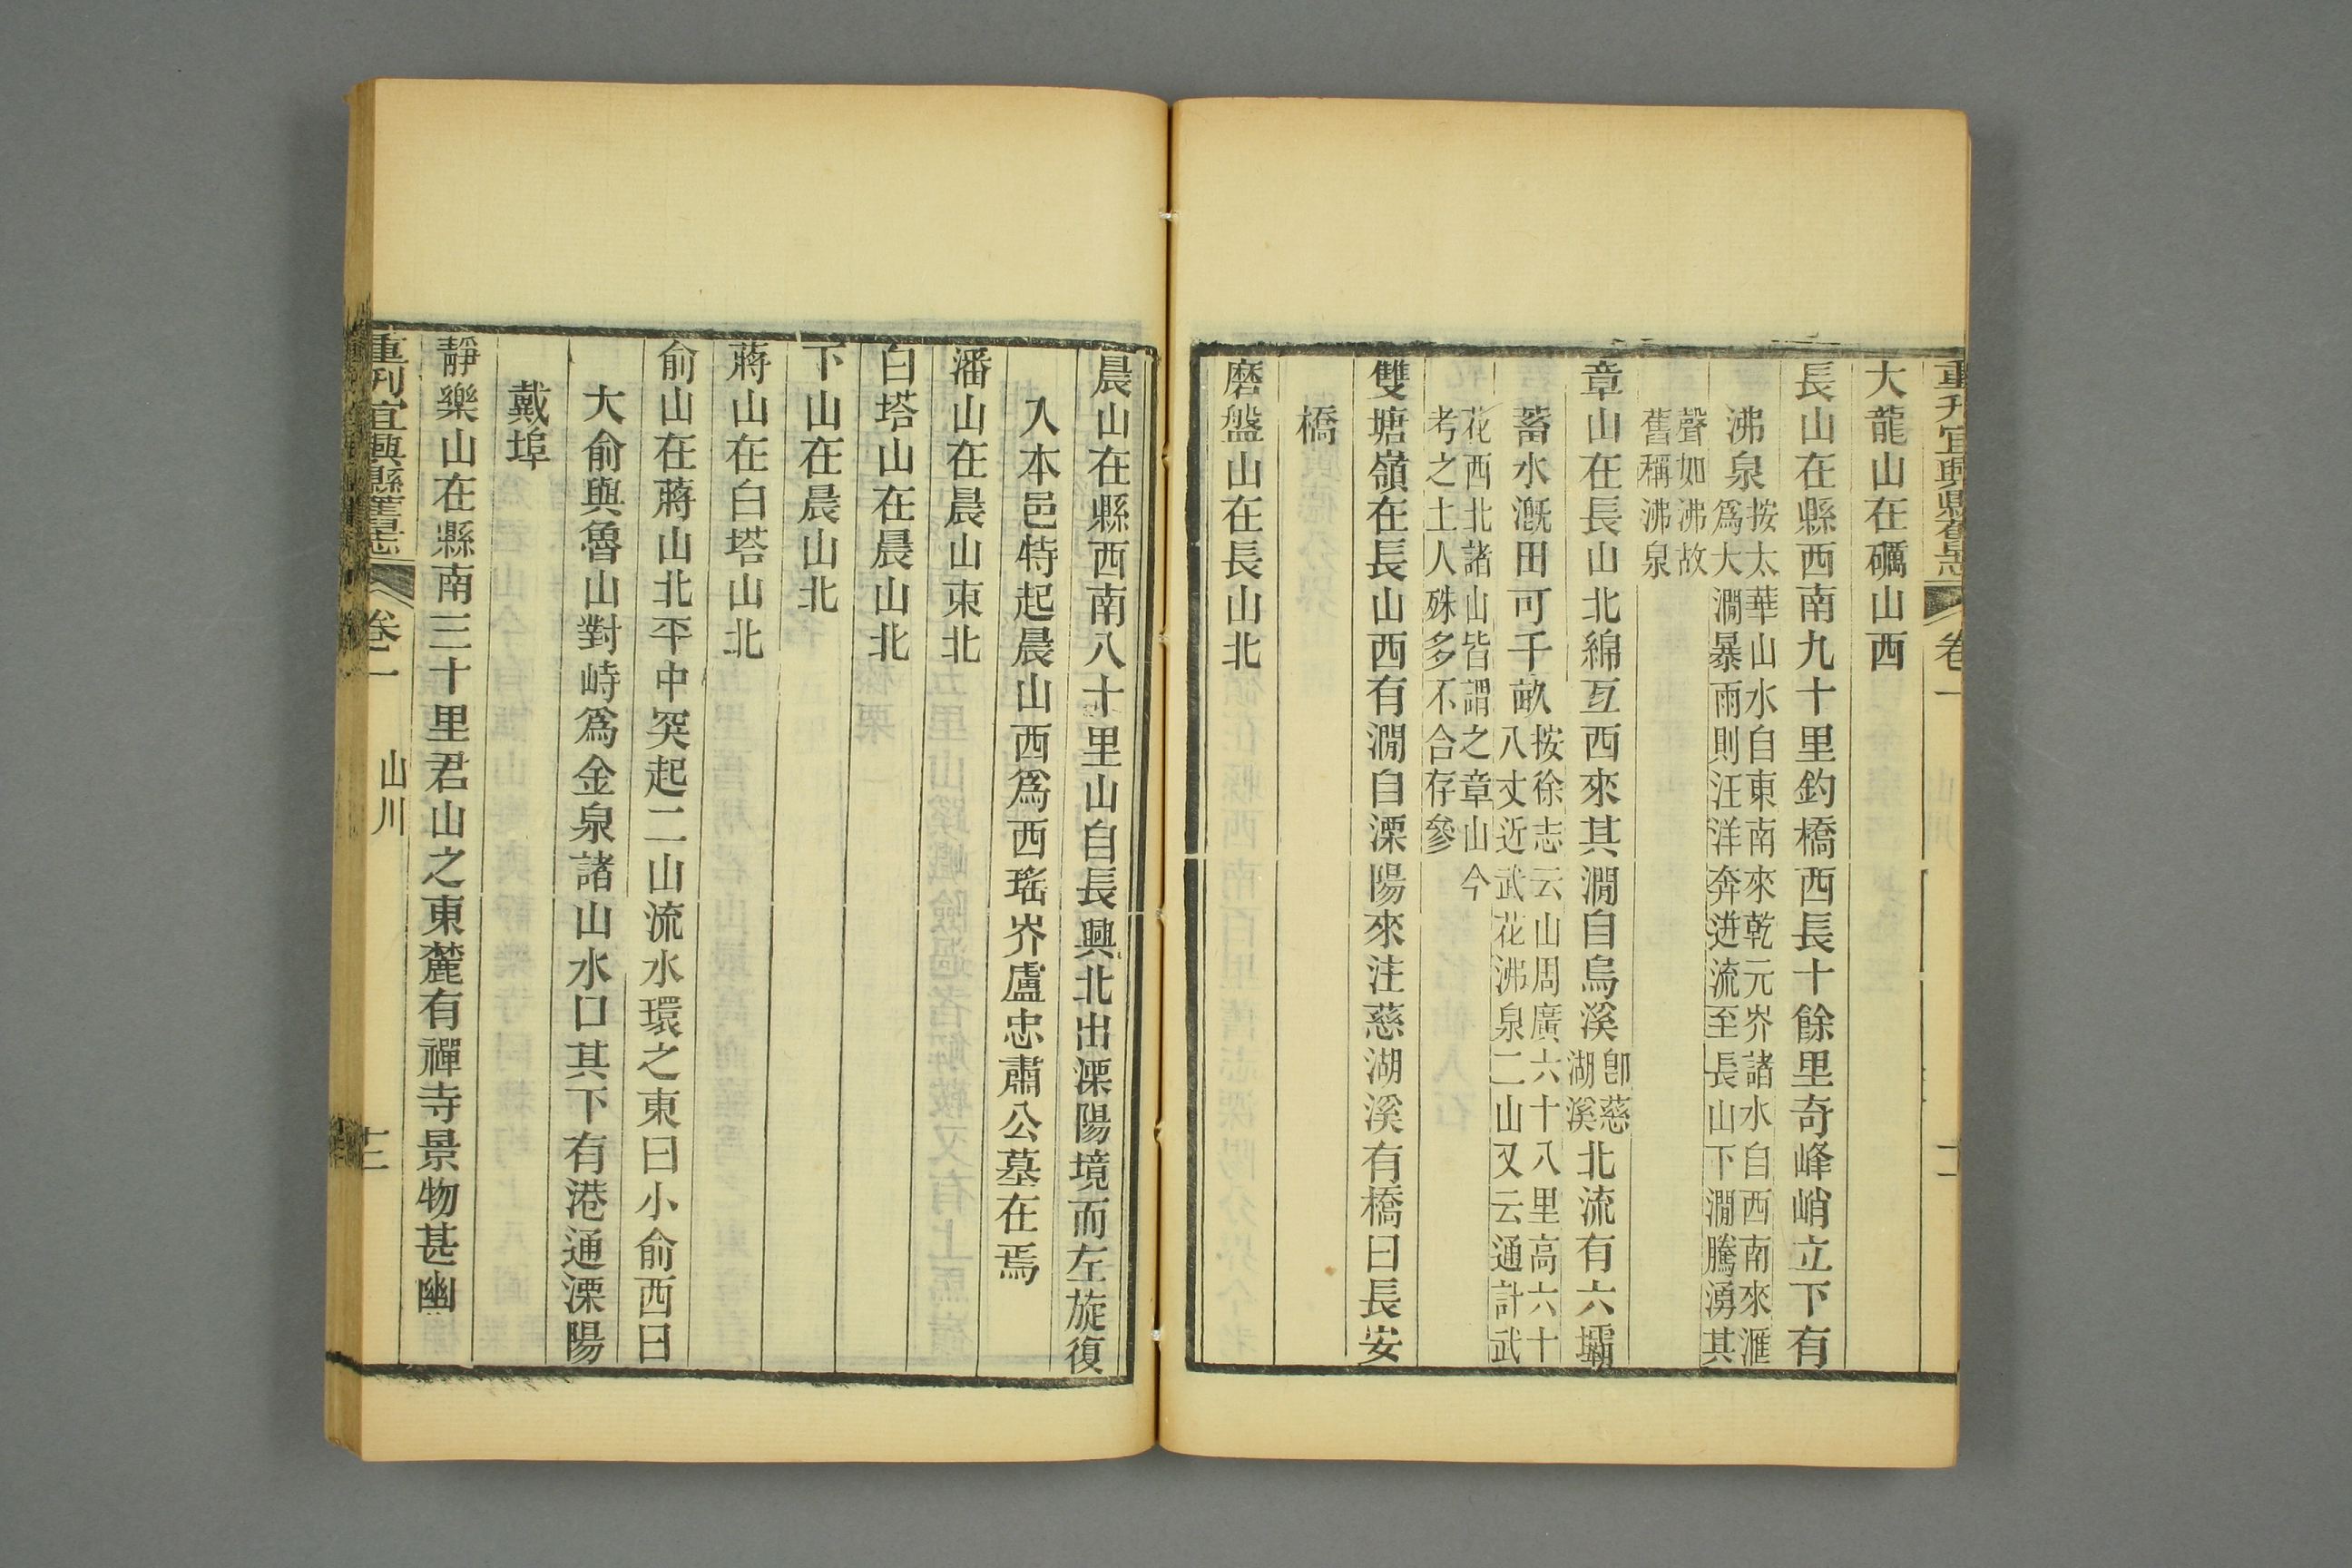 重刊宜興縣舊志
卷一
大龍山在礪山西
長山在縣西南九十里釣橋西長十餘里奇峰峭立下有
沸泉按太華山水自東南來乾元岕諸水自西南來滙
爲大澗暴雨則汪洋奔迸流至長山下澗騰湧其
聲如沸故
舊稱沸泉
章山在長山北綿亙西來其澗自烏溪卽慈湖溪北流有六壩
蓄水漑田可千畝按徐志云山周廣六十八里高六十
八丈近武花沸泉二山又云通計武
花西北諸山皆謂之章山今
考之土人殊多不合存參
雙塘嶺在長山西有澗自溧陽來注慈湖溪有橋曰長安
橋
磨盤山在長山北
晨山在縣西南八十里山自長興北出溧陽境而左旋復
入本邑特起晨山西爲西瑤岕盧忠肅公墓在焉
潘山在晨山東北
白塔山在晨山北
下山在晨山北
蔣山在白塔山北
俞山在蔣山北平中突起二山流水環之東曰小俞西曰
大俞與魯山對峙爲金泉諸山水口其下有港通溧陽
戴埠
靜樂山在縣南三十里君山之東麓有禪寺景物甚幽
重刊宜興縣舊志
卷一
山川